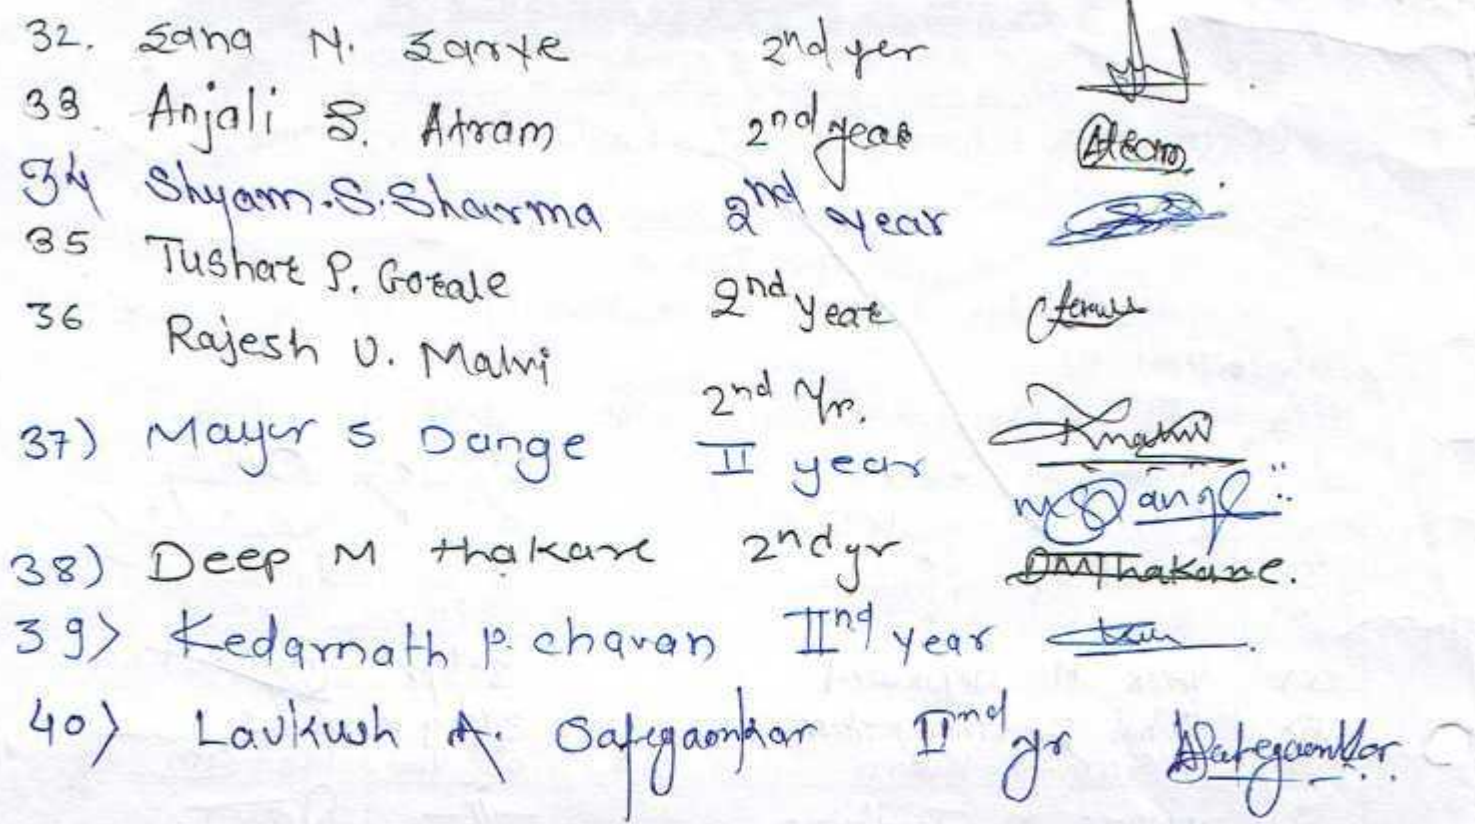 32. Sana N. Sarye 2nd yer
33 Anjali S. Atram 2nd year Atram.
34 Shyam.S.Sharma 2nd year
35 Tushar P. Gotale 2nd year
36 Rajesh U. Malvi 2nd Yr.
37) Mayur S Dange II year
38) Deep M thakare 2nd yr DMThakare.
39> Kedarnath p. chavan IInd year
40> Lavkush A. Sategaonkar IInd yr ASategaonkar